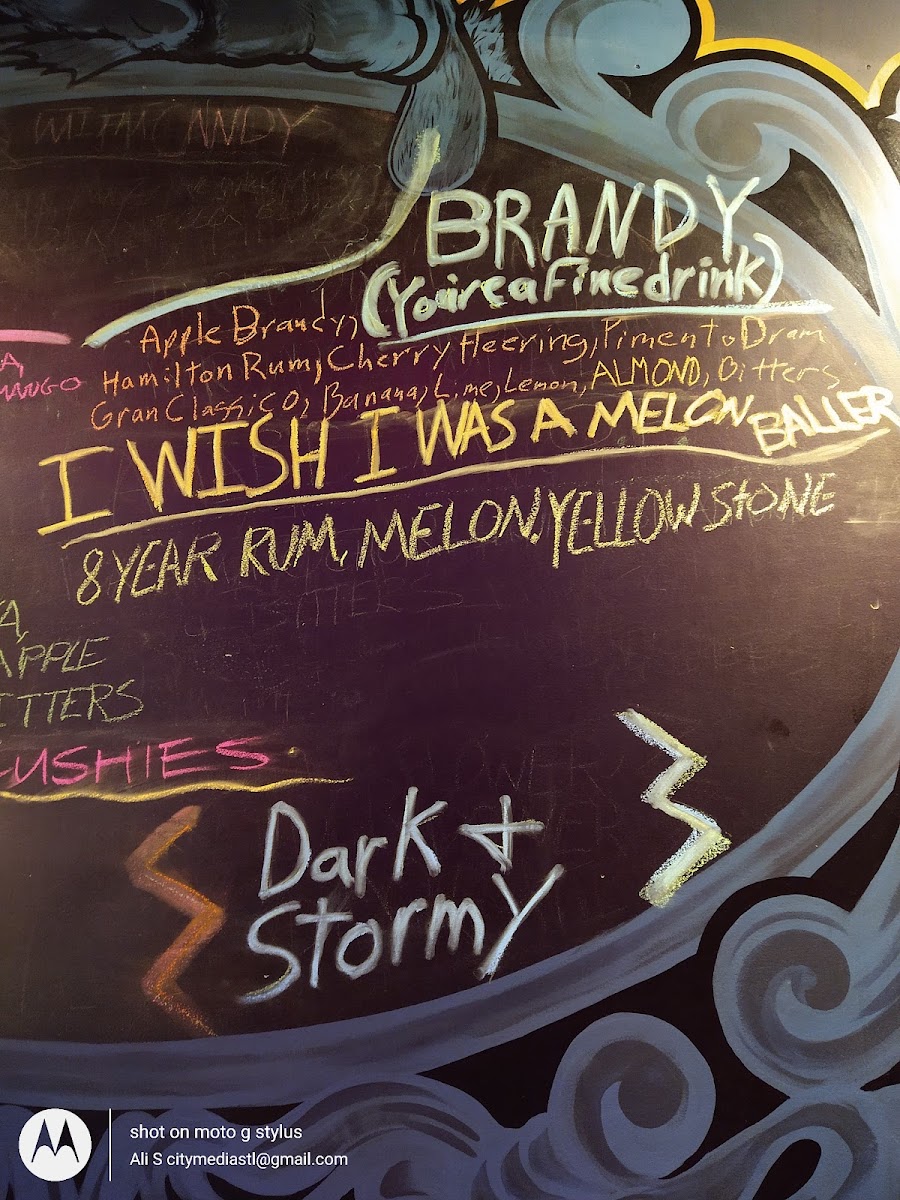 BRANDY
(You'reaFinedrink)
Apple Brandy,
Hamilton Rum, Cherry Heering, Pimento Dram
Gran Classico, Banana, Lime, Lemon, ALMOND, Bitters
I WISH I WAS A MELON BALLER
8 YEAR RUM, MELON, YELLOWSTONE
BITTERS
A,
MANGO
A,
APPLE
ITTERS
LUSHIES
Dark +
Stormy
shot on moto g stylus
Ali S citymediastl@gmail.com